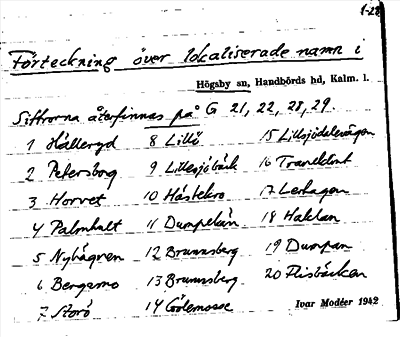 1-20
Förteckning över lokaliserade namn i
Högsby sn, Handbörds hd, Kalm. l.
Siffrorna återfinnas på G 21, 22, 28, 29.
1 Hälleryd 8 Lillö 15 Lillsjödelsvägen
2 Petersborg 9 Lillesjöbäck 16 Tranklint
3 Horvet 10 Hästekro 17 Lerhagen
4 Palmhalt 11 Dumpekän 18 Haklan
5 Nybågren 12 Brunnsberg 19 Dumpan
6 Bergamo 13 Brunnsberg 20 Flisbäcken
7 Storö 14 Gölemosse
Ivar Modéer 1942